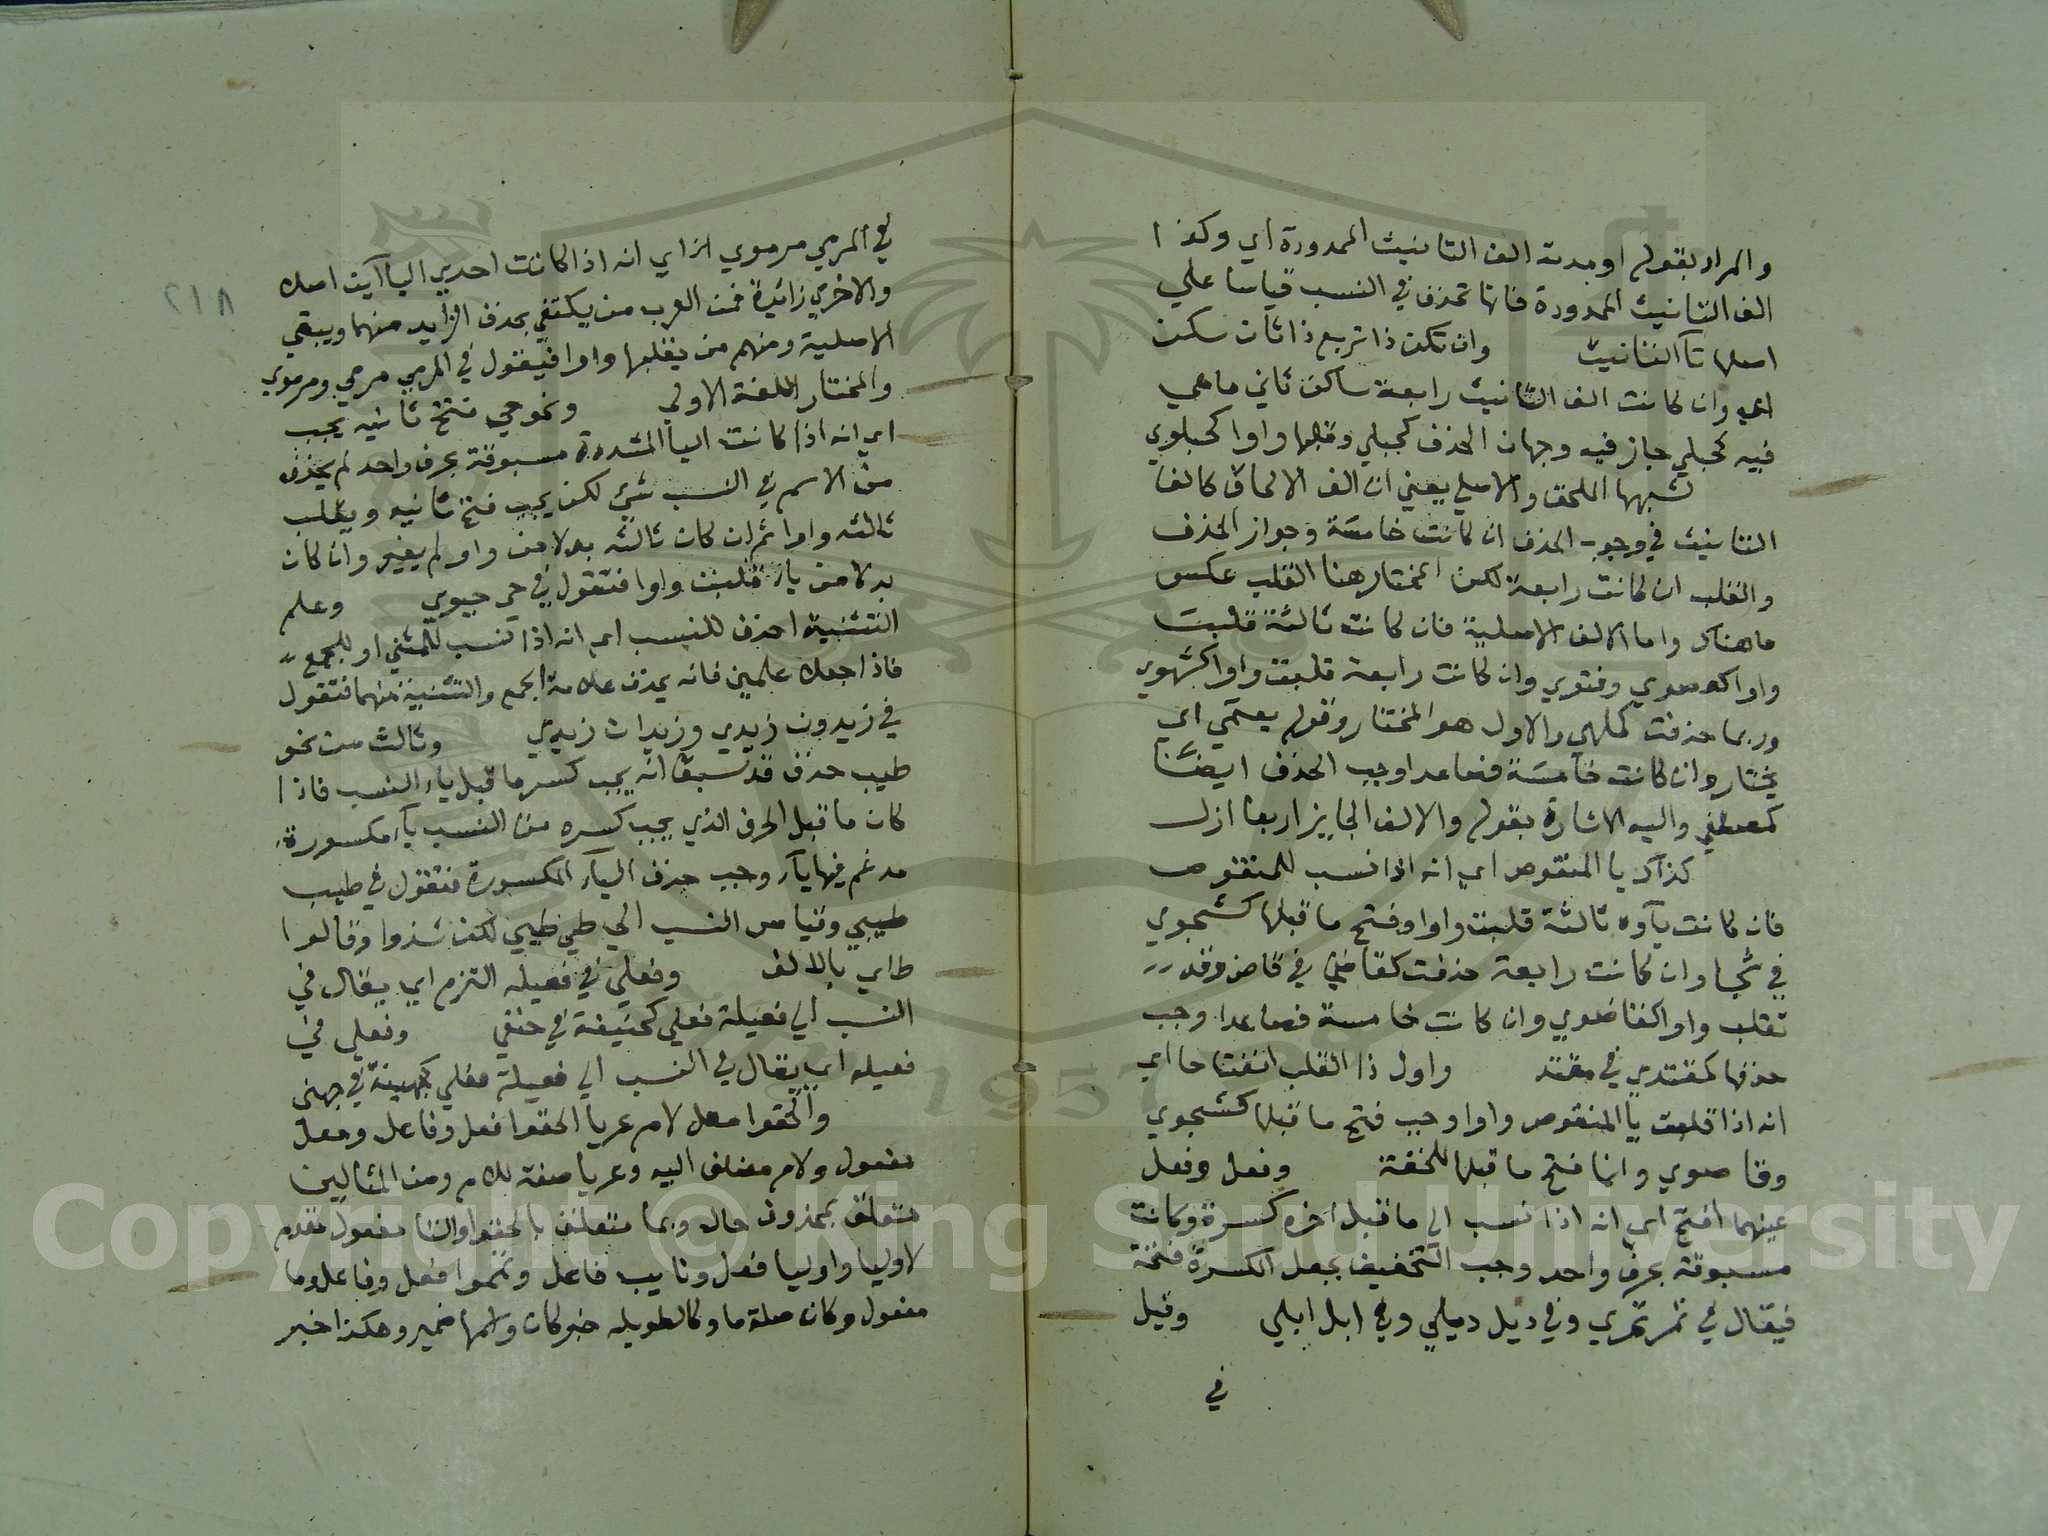 والمراد بقوله او مدته الف التانيث الممدودة اي وكذا
الف التانيث الممدودة فانها تحذف في النسب قياسا علي
اصلها تآ التانيث وان تكن ذا تربع ذا ثان سكن
اي وان كانت الف التانيث رابعة ساكن ثاني ما هي
فيه كحبلي جاز فيه وجهان الحذف كحبلي وقلبها واوا كحبلوي
لشبهها الملحق والاصلي يعني ان الف الالحاق كالف
التانيث في وجوب الحذف ان كانت خامسة وجواز الحذف
والقلب ان كانت رابعة لكن المختار هنا القلب عكس
ما هناك واما الالف الاصلية فان كانت ثالثة قلبت
واوا كعصوي وفتوي وان كانت رابعة قلبت واوا
وربما حذفت كملهي والاول هو المختار وقوله يعتمي اي
يختار وان كانت خامسة فصاعدا وجب الحذف ايضا
كمصطفي واليه الاشارة بقوله والالف الجايز اربعا ازل
كذاك يا المنقوص اي انه اذا نسب للمنقوص
فان كانت يآوه ثالثة قلبت واوا وفتح ما قبلها كشجوي
في شجا وان كانت رابعة حذفت كقاضي في قاض وقد
تقلب واوا كقاضوي وان كانت خامسة فصاعدا وجب
حذفها كمقتدي في مقتد واول ذا القلب انفتاحا اي
انه اذا قلبت يا المنقوص واوا وجب فتح ما قبلها كشجوي
وقاضوي وانما فتح ما قبلها للخفة وفعل وفعل
عينهما افتح اي انه اذا نسب الي ما قبل اخره كسرة وكانت
مسبوقة بحرف واحد وجب التخفيف بجعل الكسرة فتحة
فيقال في نمر نمري وفي دئل دئلي وفي ابل ابلي وقيل
في
٢١٨
في المرمي مرموي الخ اي انه اذا كانت احدي اليآآت اصلا
والاخري زائدة فمن العرب من يكتفي بحذف الزايد منهما ويبقي
الاصلية ومنهم من يقلبها واوا فيقول في المرمي مرمي ومرموي
والمختار اللغة الاولي ونحو حي فتح ثانيه يجب
اي انه اذا كانت اليا المشددة مسبوقة بحرف واحد لم يحذف
من الاسم في النسب شيئ لكن يجب فتح ثانيه ويقلب
ثالثه واوا ثم ان كان ثالثه بدلا من واو لم يغير وان كان
بدلا من ياء قلبت واوا فتقول في حي حيوي وعلم
التثنية احذف للنسب اي انه اذا نسب للمثني او للجمع
فاذا جعلا علمين فانه يحذف علامة الجمع والتثنية منهما فتقول
في زيدون زيدي وزيدان زيدي وثالث من نحو
طيب حذف قد سبق انه يجب كسر ما قبل ياء النسب فاذا
كان ما قبل الحرف الذي يجب كسره من النسب يآء مكسورة
مدغم فيها يآء وجب حذف اليآء المكسورة فتقول في طيب
طيبي وقياس النسب الي طي طيئي لكن شذوا وقالوا
طاي بالالف وفعلي في فعيلة التزم اي يقال في
النسب الي فعيلة فعلي كحنيفة في حنفي وفعلي في
فعيلة اي يقال في النسب الي فعيلة فعلي كجهينة في جهني
والحقوا معل لام عريا الحقوا فعل وفاعل ومعل
مفعول ولام مضاف اليه وعريا صفة للام ومن المثالين
متعلق بمحذوف حال وبما متعلق بالحقوا والتا مفعول مقدم
لاوليا واوليا فعل ونايب فاعل وتمموا فعل وفاعل وما
مفعول وكان صلة ما وكالطويله خبر كان واسمها ضمير وهكذا خبر
Copyright © King Saud University
1957